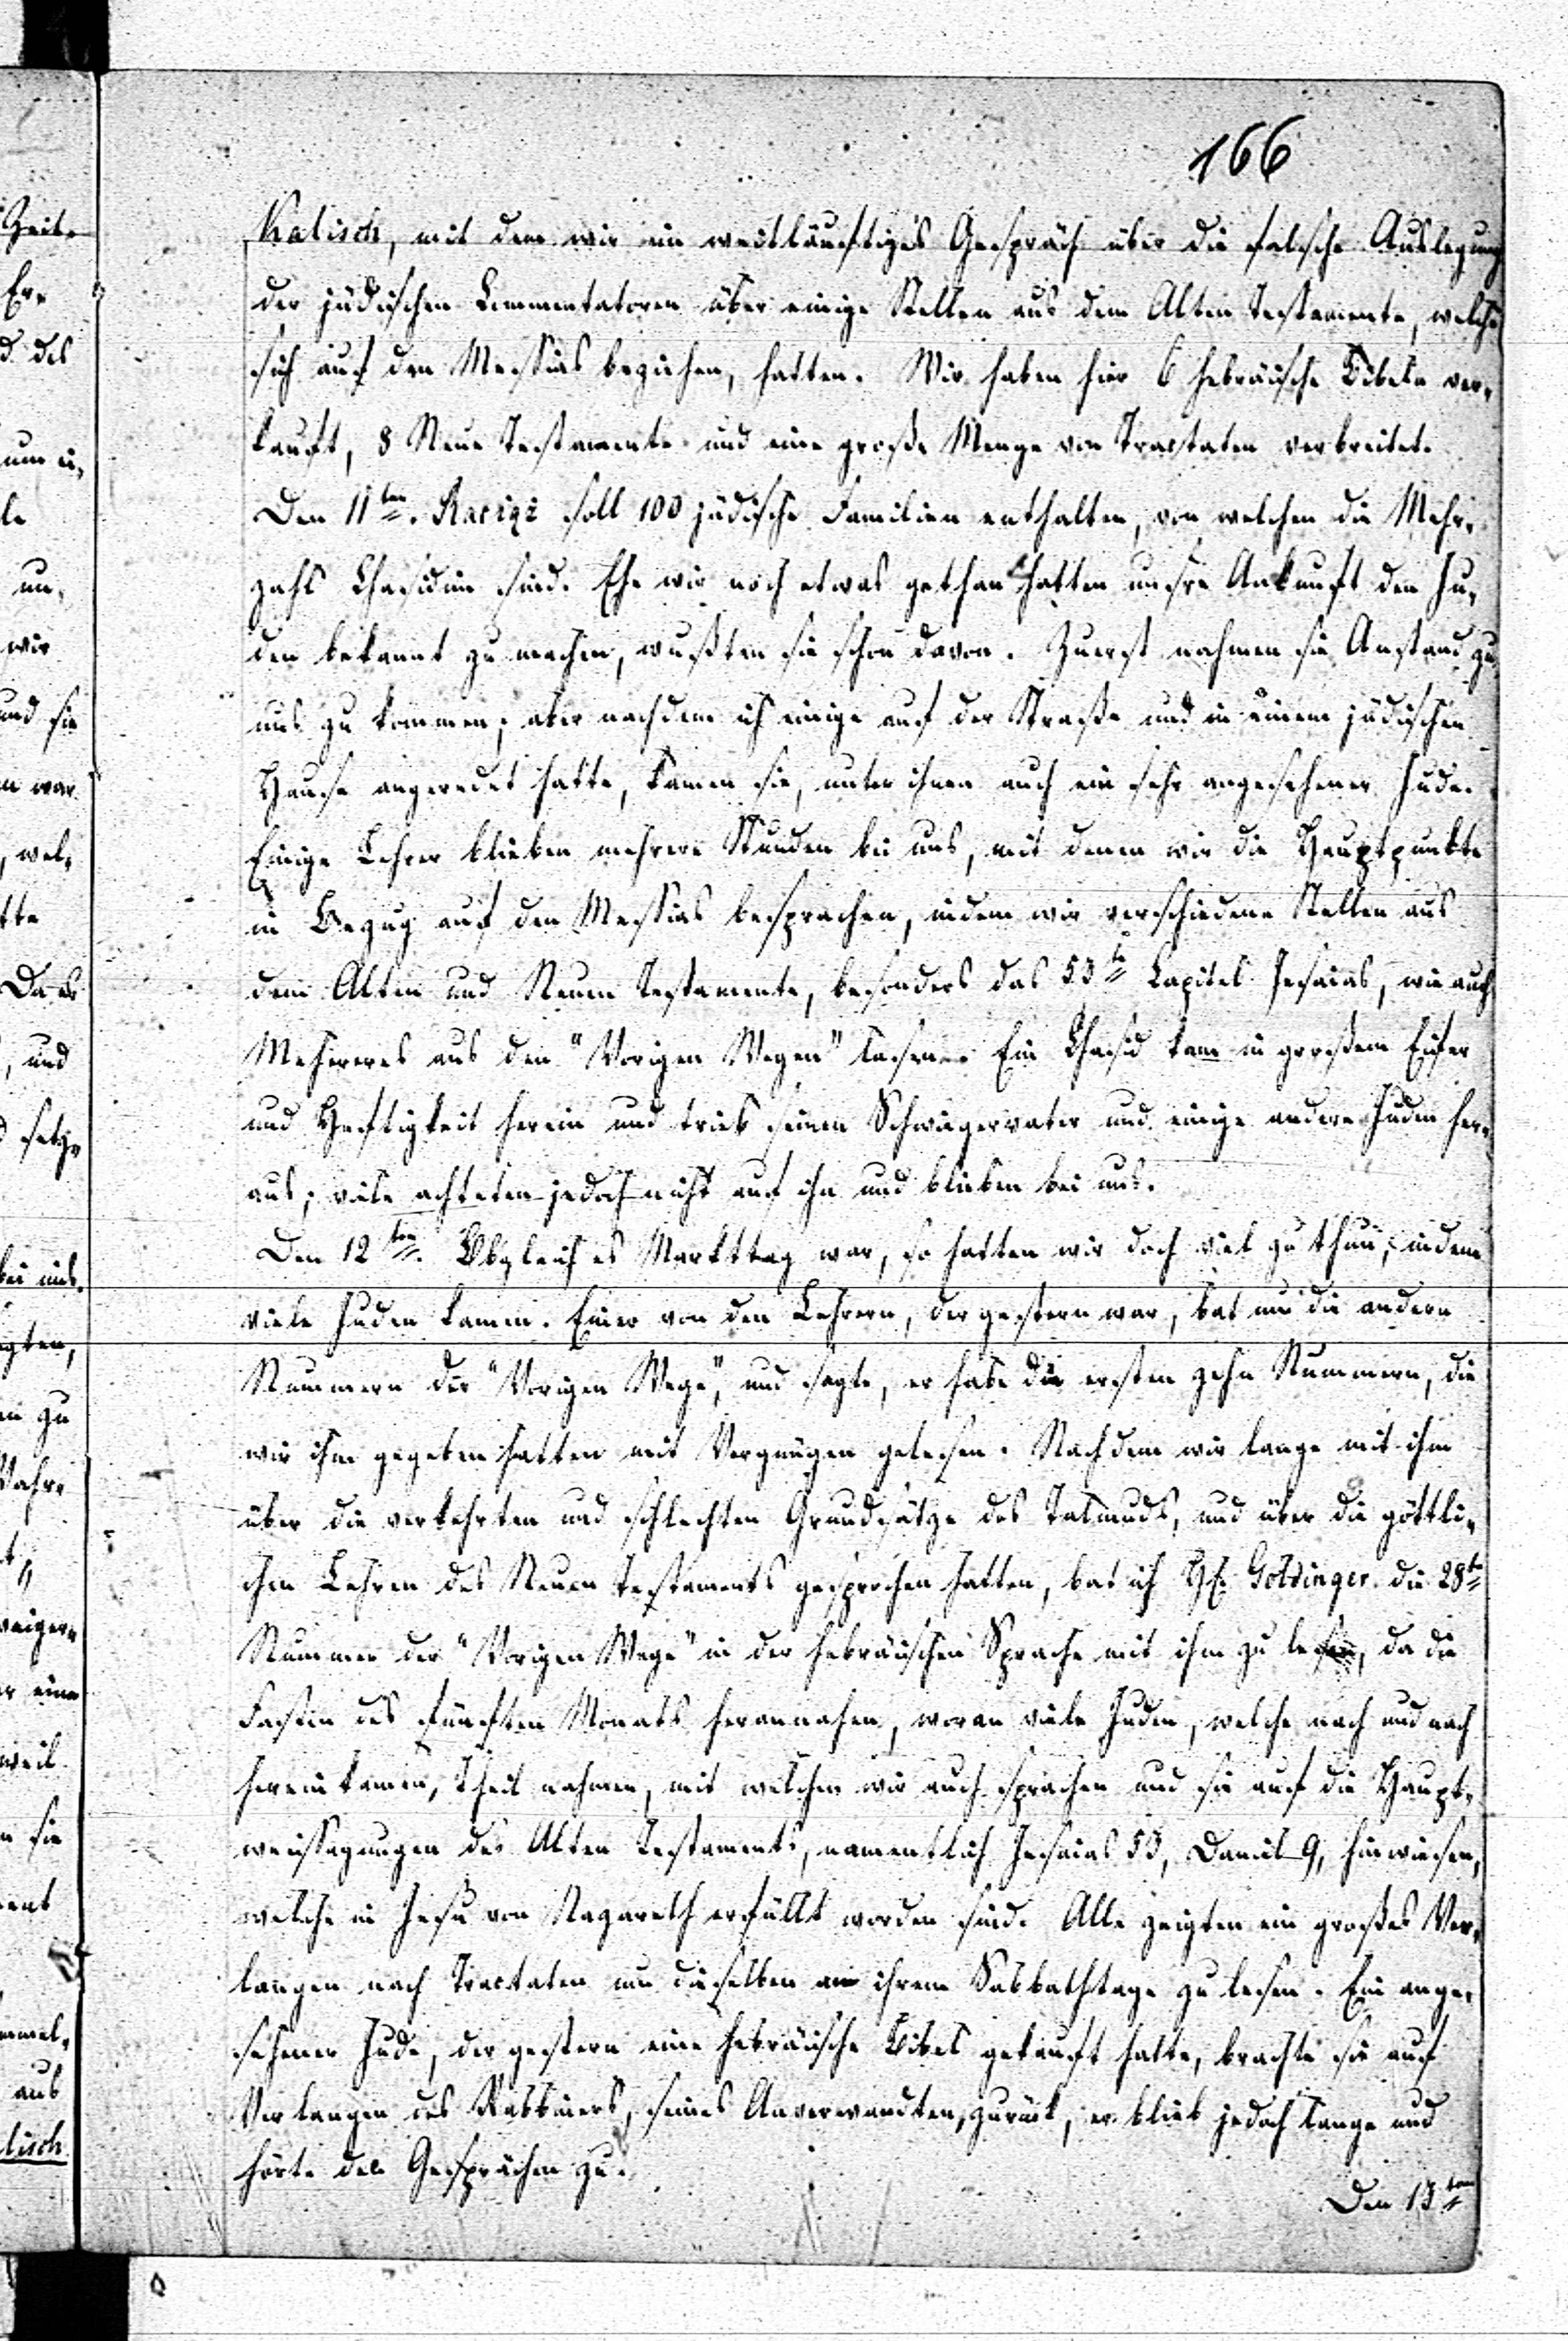 166
Kalisch, mit dem wir ein weitläuftiges Gespräch über die falsche Auslegung
der jüdischen Commentatoren über einige Stellen aus dem Alten Testamente, welche
sich auf den Messias beziehen, hatten. Wir haben hier 6 hebräische Bibeln ver-
kauft, 8 Neue Testamente und eine große Menge von Tractaten verbreitet.
Den 11ten. soll 100 jüdische Familien enthalten, von welchen die Mehr-
zahl Chasidim sind. Ehe wir noch etwas gethan hatten unsre Ankunft den Ju-
den bekannt zu machen, wußten sie schon davon. Zuerst nahmen sie Anstand zu
uns zu kommen; aber nachdem ich einige auf der Straße und in einem jüdischen
Hause angeredet hatte, kamen sie, unter ihnen auch ein sehr angesehener Jude.
Einige Lehrer blieben mehrere Stunden bei uns, mit denen wir die Hauptpunkte
in Bezug auf den Messias besprachen, indem wir verschiedene Stellen aus
dem Alten und Neuen Testamente, besonders das 53te Capitel Jesaias, wie auch
Mehreres aus den "Vorigen Wegen" lasen. Ein Chasid kam in großem Eifer
und Heftigkeit herein und trieb seinen Schwiegervater und einige andere Juden her-
aus; viele achteten jedoch nicht auf ihn und blieben bei uns.
Den 12ten. Obgleich es Markttag war, so hatten wir doch viel zu thun, indem
viele Juden kamen. Einer von den Lehrern, der gestern war, bat um die andern
Nummern der "Vorigen Wege", und sagte, er habe die ersten zehn Nummern, die
wir ihm gegeben hatten mit Vergnügen gelesen. Nachdem wir lange mit ihm
über die verkehrten und schlechten Grundsätze des Talmuds, und über die göttli-
chen Lehren des Neuen Testaments gesprochen hatten, bat ich H. Goldinger die 28te
Nummer der "Vorigen Wege" in der hebräischen Sprache mit ihm zu lesen, da die
Fasten des fünften Monats herannahen, woran viele Juden, welche nach und nach
herein kamen, Theil nahmen, mit welchen wir auch sprachen und sie auf die Haupt-
weissagungen des Alten Testaments, namentlich Jesaias 53, Daniel 9, hinwiesen,
welche in Jesu von Nazareth erfüllt worden sind. Alle zeigten ein großes Ver-
langen nach Tractaten um dieselben an ihrem Sabbathtage zu lesen. Ein ange-
sehener Jude, der gestern eine hebräische Bibel gekauft hatte, brachte sie auf
Verlangen des Rabbiners, seines Anverwandten, zurück, er blieb jedoch lange und
hörte den Gesprächen zu.
Den 13ten